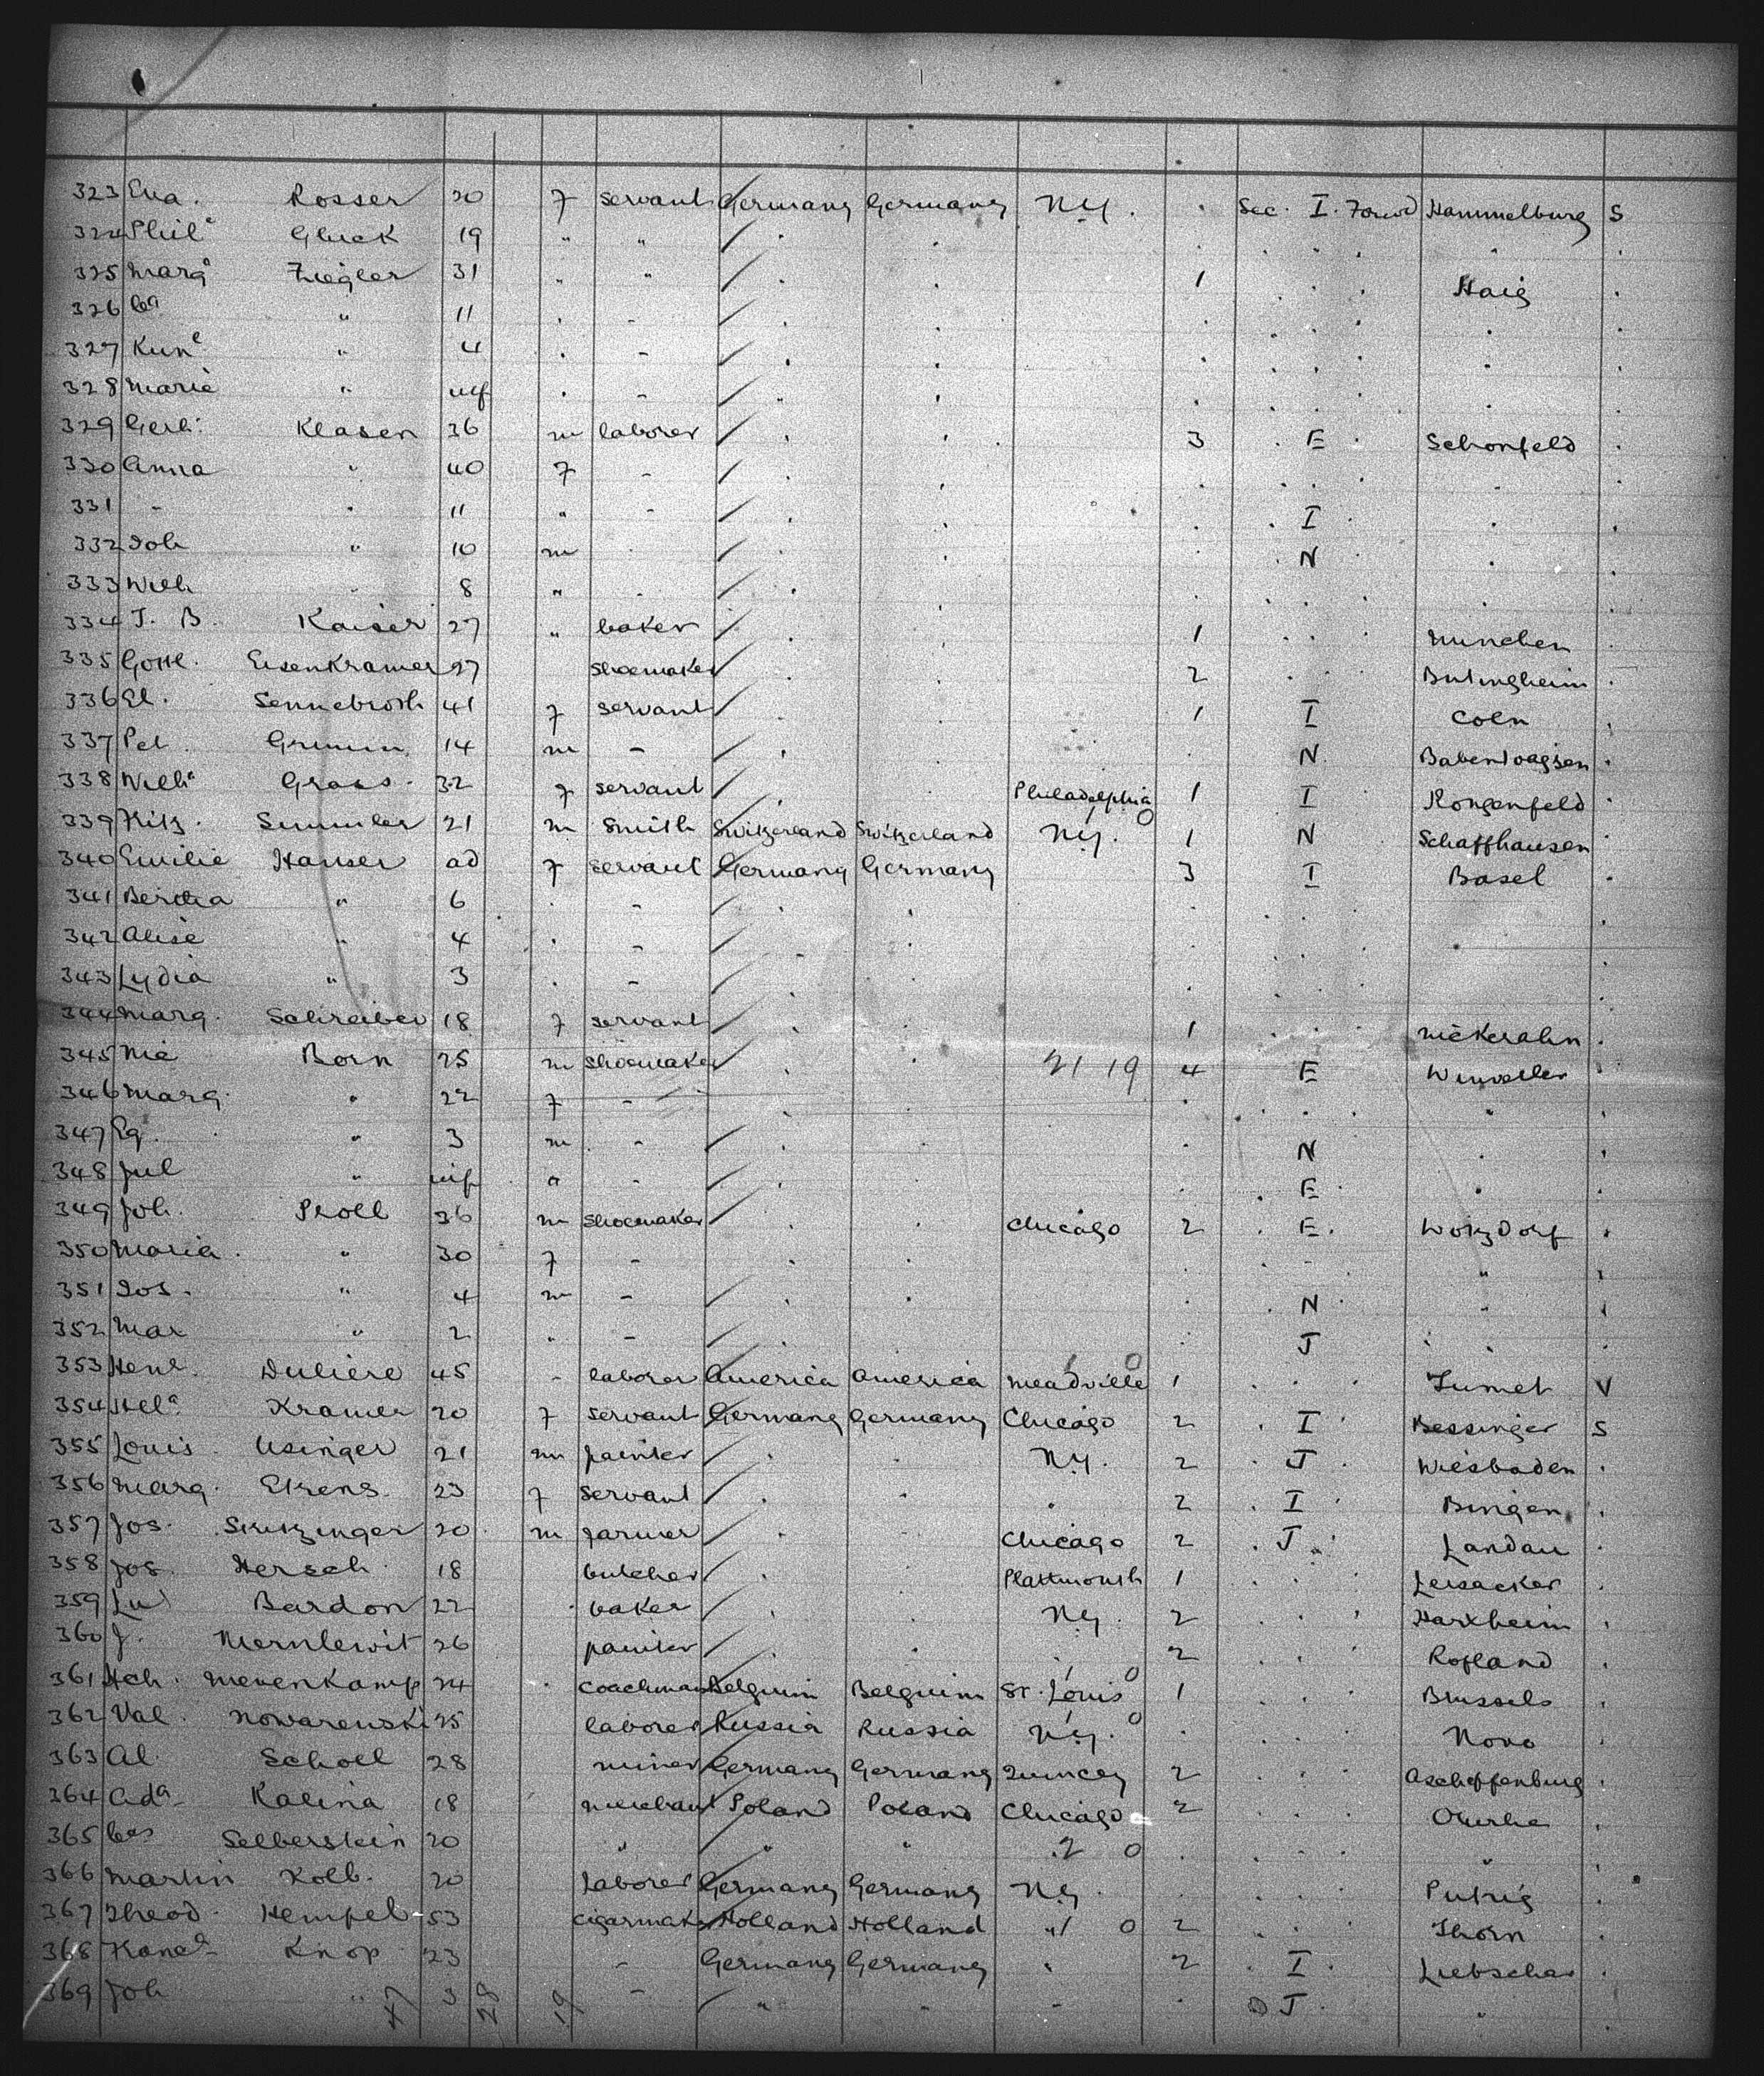 323 Eva. Rosser 20 f servant Germany Germany N.Y. . Sec. I. Forwd Hammelburg S
324 Phil a Gluck 19 " " . . . . " . " .
325 Marg a Ziegler 31 " " . . 1 . . . Haig .
326 Ca " 11 . - . . . . . . . .
327 Kune " 4 . - . . . . . . . .
328 Marie " inf . - " . . . . . . .
329 Gerh. Klasen 36 m laborer . . . 3 . E . Schonfeld .
330 Anna " 40 f - . . . . . . . .
331 - " 11 " - . . . . I . . .
332 Joh " 10 m . . . . . N . .
333 Wilh " 8 " . . . . . . . .
334 J. B. Kaiser 27 " baker . . 1 . . . Munchen .
335 Gottl. Eisenkramer 27 shoemaker . . 2 . . . Butingheim .
336 El. Sennebroth 41 f servant . . 1 I Coln .
337 Pet. Grumm 14 m - . . . N. Babenhagsen .
338 Wilh a Grass. 32 f servant . . Philadelphia 1 I Rongenfeld .
339 Fitz. Simmler 21 m Smith Switzerland Switzerland N.Y. 1 N Schaffhausen
340 Emilie Hanser ad f servant Germany Germany 3 I Basel .
341 Bertha " 6 . - . . . . . . .
342 Alise " 4 . - . . . . . . .
343 Lydia " 3 . - . . . . . . .
344 Marg. Schreiber 18 f servant . . 1 . . . Nickeraln .
345 Nic Born 25 m shoemaker . . 21 19 4 E Winweiler .
346 Marg. " 22 f - . . . . . . " .
347 Eg. " 3 m - . . . N . .
348 Jul " inf " - . . . . E . " .
349 Joh. Proll 36 m shoemaker . . Chicago 2 . E. Wotzdorf .
350 Maria . " 30 f - . . . . - . " .
351 Jos. " 4 m - . . . . N . " .
352 Max " 2 " - . . . J . . .
353 Hen a. Duliere 45 - laborer America America Meadville 1 . . . Jumet V
354 Hel a Kramer 20 f servant Germany Germany Chicago 2 . I . Bessinger S
355 Louis Usinger 21 m painter . . N.Y. 2 . J . Wiesbaden .
356 Marg. Ekens. 23 f servant . . . 2 . I . Bingen .
357 Jos. Skitzinger 20 m farmer . . Chicago 2 . J . Landau .
358 Jos. Hersch 18 butcher . . Plattmouth 1 . . . Leisacker .
359 Lud Bardon 22 . baker . . N.Y. 2 . . . Harxheim .
360 J. Mernlewit 26 painter . . . 2 . . Rofland .
361 Hch. Mevenkamp 24 . coachman Belgium Belgium St. Louis 0 1 . . . Brussels .
362 Val. Nowarenski 25 laborer Russia Russia N.Y. 0 . . . . Novo .
363 Al. Scholl 28 miner Germany Germany Quincey 2 . . . Aschaffenburg .
364 Ad a Kalina 18 merchant Poland Poland Chicago 2 . . . .
365 Selberstein 20 " " " 2 0 . . . . " .
366 Martin Kolb. 20 laborer Germany Germany N.Y. . . . . Putzig .
367 Theod. Hempel 53 cigarmaker Holland Holland " 0 2 . . Thorn .
368 Knop 23 - Germany Germany " 2 . I. Liebschar .
369 Joh " 3 - " - - . J. " .
47 28 19